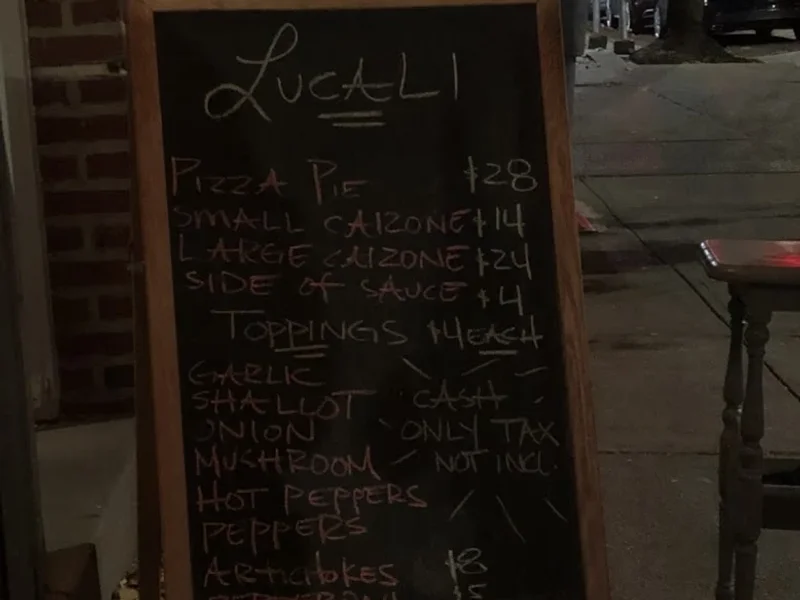 LUCALI
PIZZA PIE $28
SMALL CALZONE $14
LARGE CALZONE $24
SIDE OF SAUCE $4
TOPPINGS $4 EACH
GARLIC
SHALLOT CASH
ONION ONLY TAX
MUSHROOM NOT INCL.
HOT PEPPERS
PEPPERS
ARTICHOKES $8
PEPPERONI $5